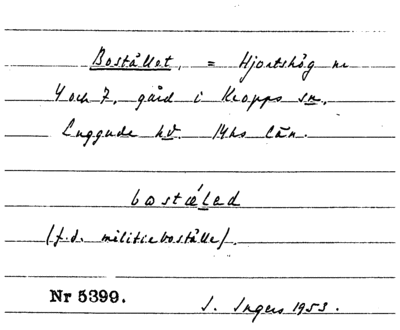 Boställlet, = Hjortshög nr
4 och 7, gård i Kropps sn,
Luggude hd. Mhs län.
bostæ´led
(f.d. militieboställe).
Nr 5399.
I. Ingers 1953.